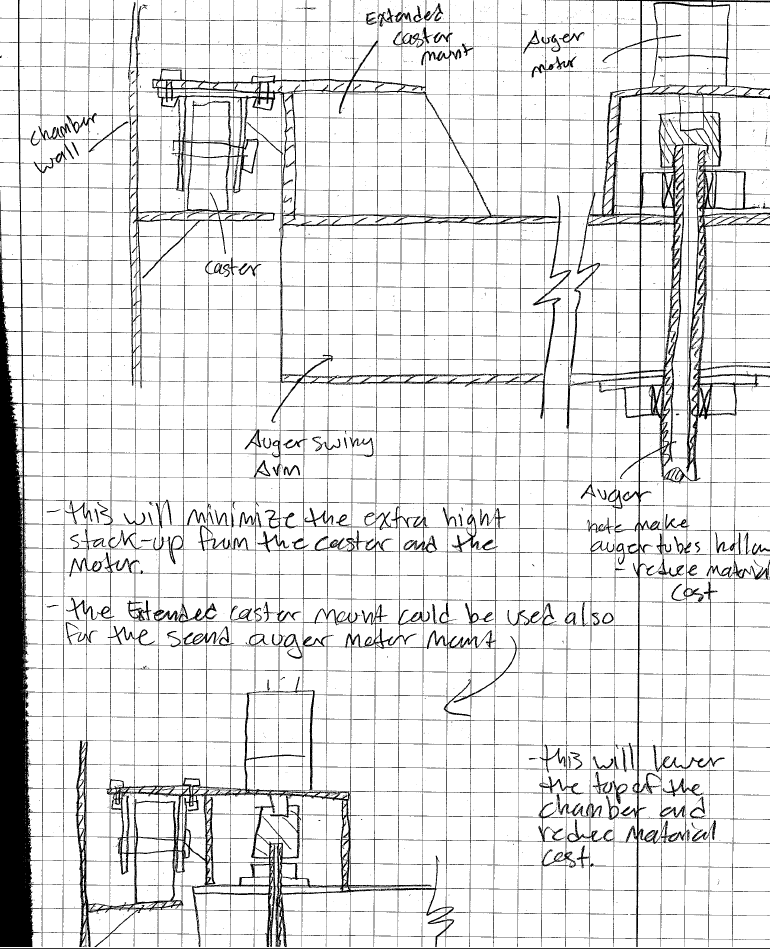 Extended
caster
mount
Auger
motor
chamber
wall
caster
Auger swing
Arm
Auger
note make
auger tubes hollow
- reduce material
cost
- this will minimize the extra hight
stack-up from the caster and the
motor.
- the Extended caster mount could be used also
for the second auger motor mount
- this will lower
the top of the
chamber and
reduce material
cost.